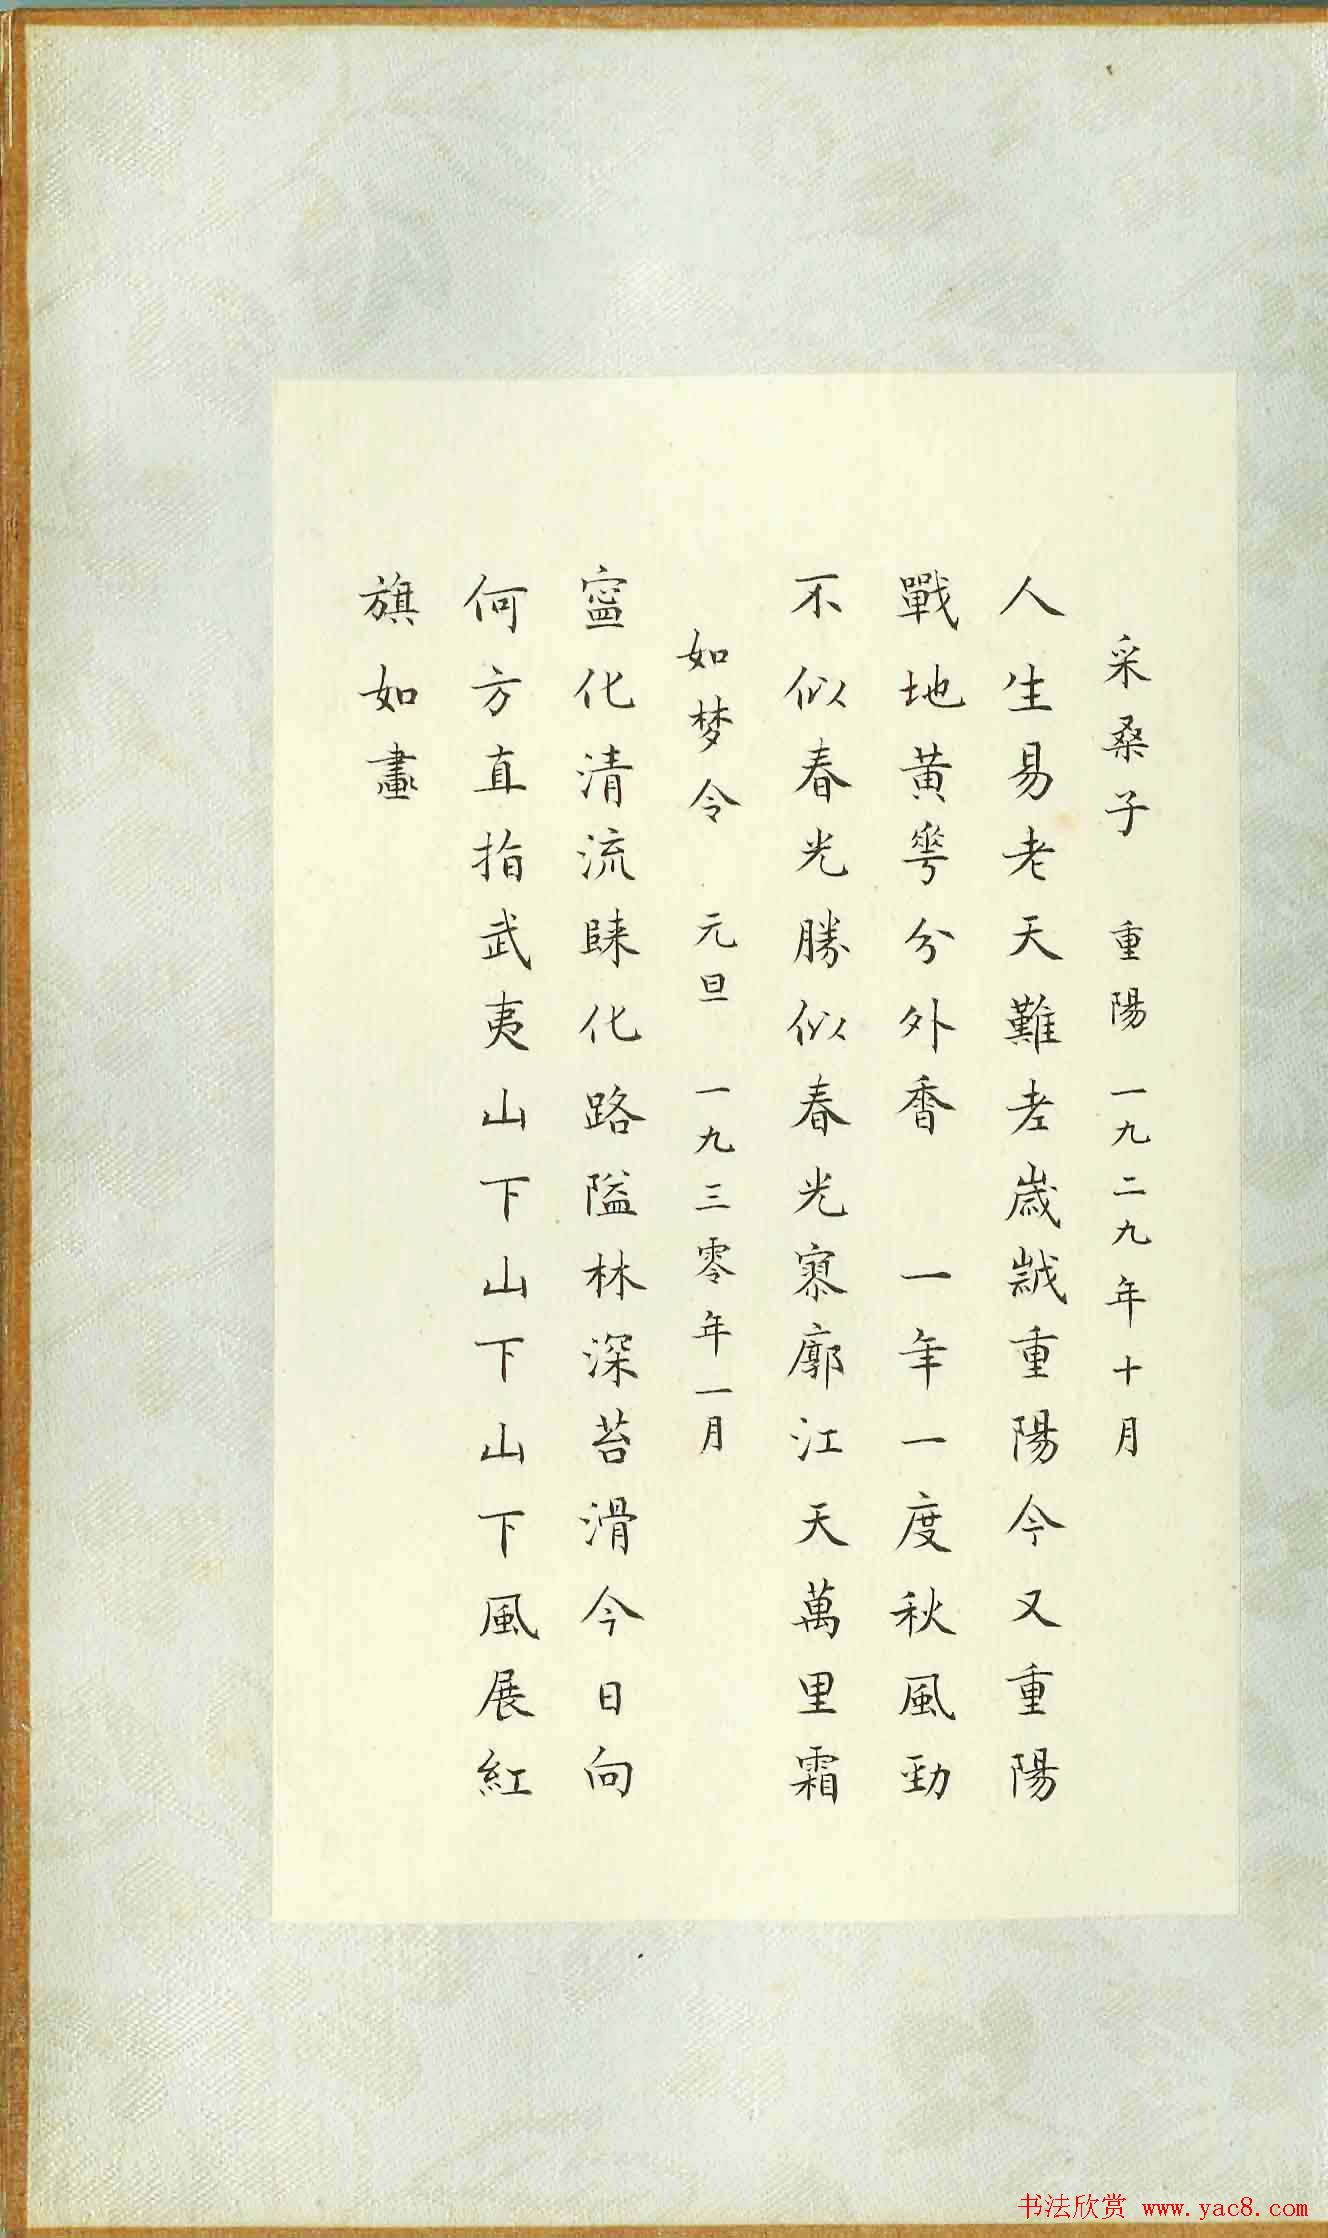 采桑子 重陽 一九二九年十月
人生易老天難老歲歲重陽今又重陽
戰地黃花分外香 一年一度秋風勁
不似春光勝似春光寥廓江天萬里霜
如梦令 元旦 一九三零年一月
寍化清流歸化路隘林深苔滑今日向
何方直指武夷山下山下山下風展紅
旗如畫
书法欣赏 www.yac8.com